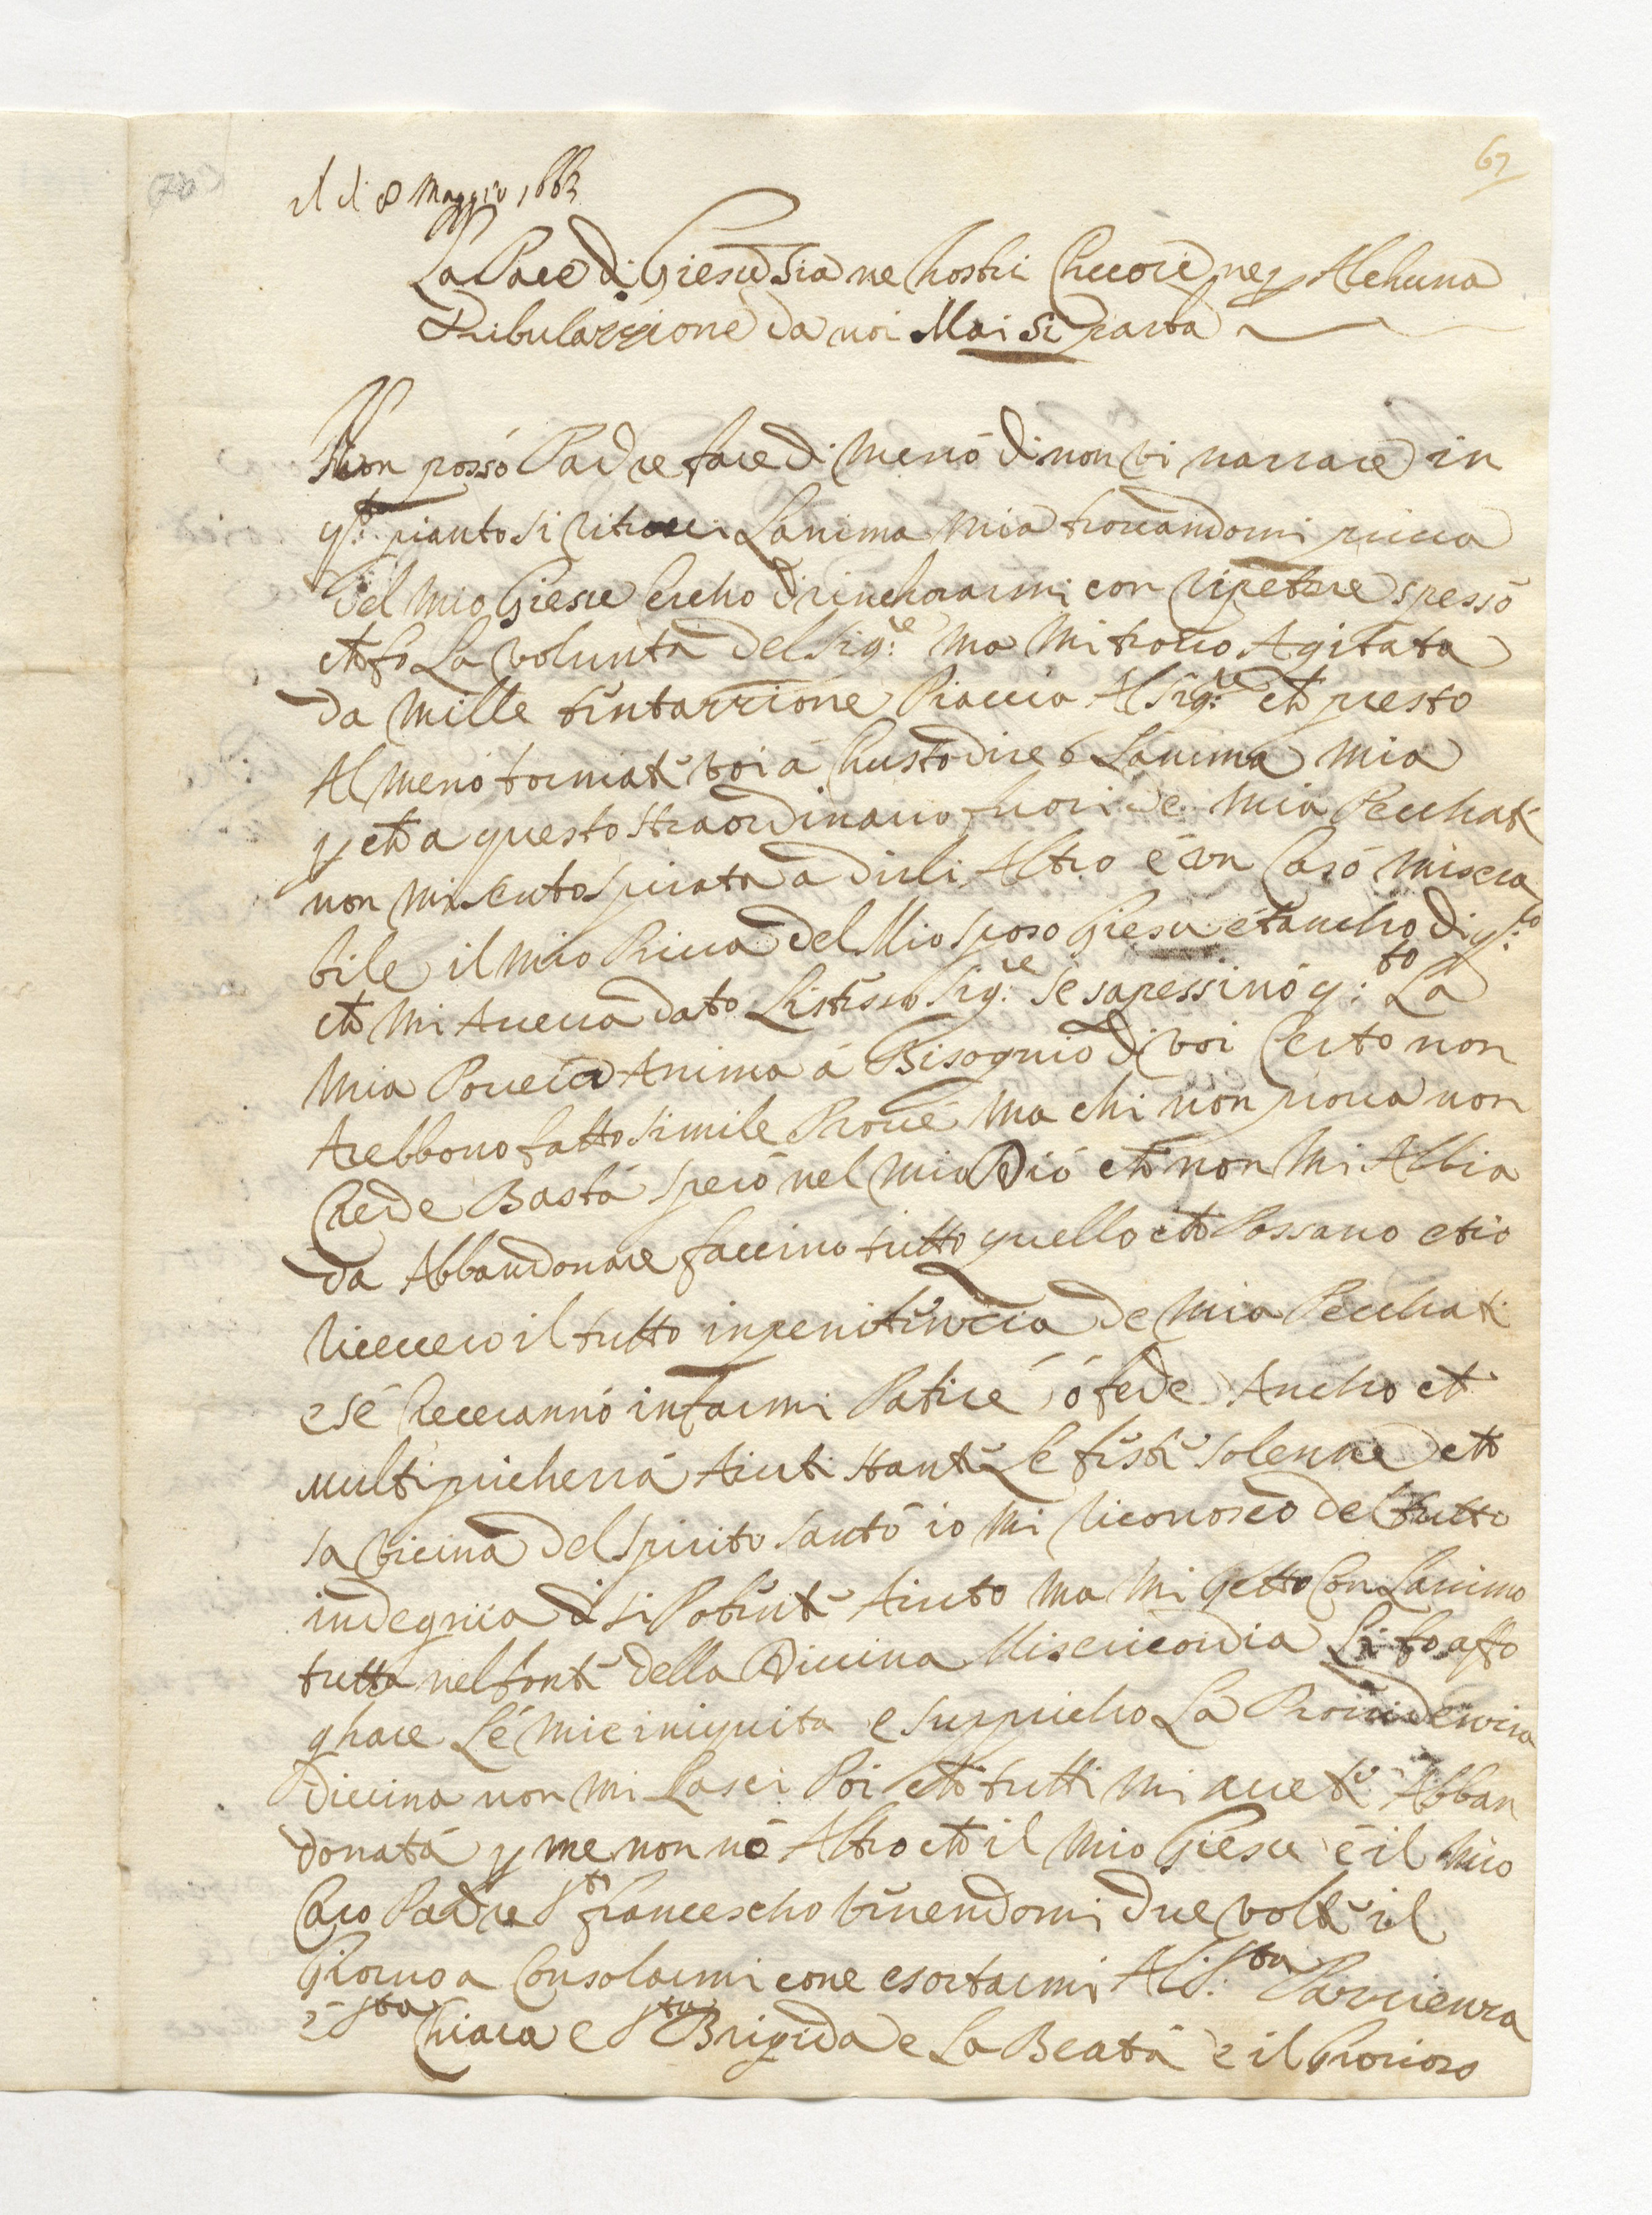 67
Il dì 8 Maggio 1663
La Pace di Giesu Sia ne Nostri Chuori ne p Alchuna
Tribulazzione da noi Mai Si parta
Non possó Padre fare di menó di non vi narrare in
q:to pianto si ritroui Lanima mia trouandomi priua
del mio Giesu Cercho di rinchorarmi con ripetere spessó
ch fo La voluntà del Sig:re ma mi trouo Agitata
da mille tentazzione Piaccia Al Sig:re ch presto
Al menó torniate voi á Chustodire Lanima mia
p ch a questo straordinario fuori de mia Pecchati
non mi sento spirata a dirli Altro é un Casó misera
bile il mio Priua del Mio sposo Giesu é ancho di q:to
ch mi Aueua dato Listesso Sig:re se sapessinó q:to La
Mia Pouera Anima á Bisognio di voi Certo non
Arebbono fatto simile Proue ma chi non proua non
Crede Bastá speró nel mio Dió ch non mi Abbia
da Abbandonare faccino tutto quello ch Possano ch io
riceuero il tutto in penitenzia de mia Pecchati
e sé Crecerannó in farmi Patire ó fede Ancho ch
multipricherrá Aiuti stante Le feste solenne ch
sa vicina del Spirito Santó io mi riconosco del tutto
indegnia di si Potente Aiuto ma mi getto Con Lanimo
tutta nel fonte della Diuina Misericordia Li fo affo
ghare Lé mie iniquita e supprico La Prouidenzia
Diuina non mi Lasci Poi ch tutti mi auete Abban
donatá p me non nó Altro ch il mio Giesu é il mio
Caro Padre S:to francescho venendomi due volte il
Giorno a Consolarmi cone esortarmi Al: S:ta Pazzienza
é S:ta Chiara e S:ta Brigida e La Beatá e il Grorioso